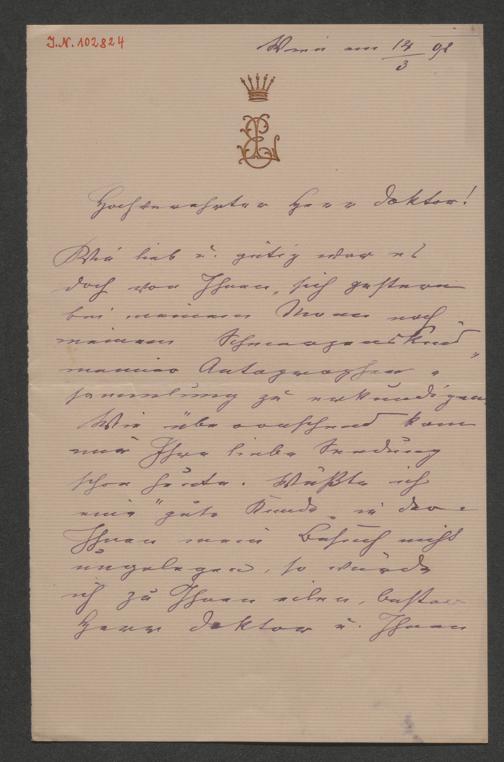 J.N. 102824
Wien am 14/3 98
EL
Hochverehrter Herr Doktor!
Wie lieb u. gütig war es
doch von Ihnen, sich gestern
bei meinem Mann nach
meinem „Schmerzenskind"
meiner Autographen-
sammlung zu erkundigen
Wie überraschend kam
mir Ihre liebe Sendung
schon heute. Wüßte ich
eine "gute Stunde" in der
Ihnen mein Besuch nicht
ungelegen, so würde
ich zu Ihnen eilen, bester
Herr Doktor u. Ihnen